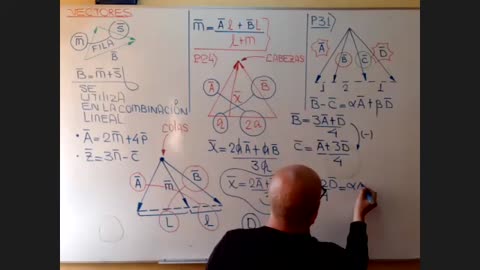 VECTORES
m̄ S̄
FILA
B̄
B̄ = m̄ + S̄
SE
UTILIZA
EN LA COMBINACIÓN
LINEAL
• Ā = 2m̄ + 4p̄
• z̄ = 3n̄ - c̄
COLAS
Ā m̄ B̄
L l
m̄ = Āl + B̄L
l + m
P04)
CABEZAS
Ā x̄ B̄
a 2a
x̄ = 2aĀ + aB̄
3a
x̄ = 2Ā +
D
P31)
Ā B̄ C̄ D̄
1 2 1
B̄ - C̄ = αĀ + βD̄
B̄ = 3Ā + D̄
4
(-)
C̄ = Ā + 3D̄
4
2D̄ = α